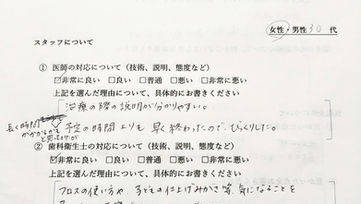 女性・男性 30 代
スタッフについて
① 医師の対応について（技術、説明、態度など）
☑非常に良い □良い □普通 □悪い □非常に悪い
上記を選んだ理由について、具体的にお書きください
治療の際の説明が分かりやすい。
長く時間が
かかるかな
と思ったけど
予定の時間よりも早く終わったので、びっくりした。
② 歯科衛生士の対応について（技術、説明、態度など）
☑非常に良い □良い □普通 □悪い □非常に悪い
上記を選んだ理由について、具体的にお書きください
フロスの使い方や、子どもの仕上げみがき等、気になることを